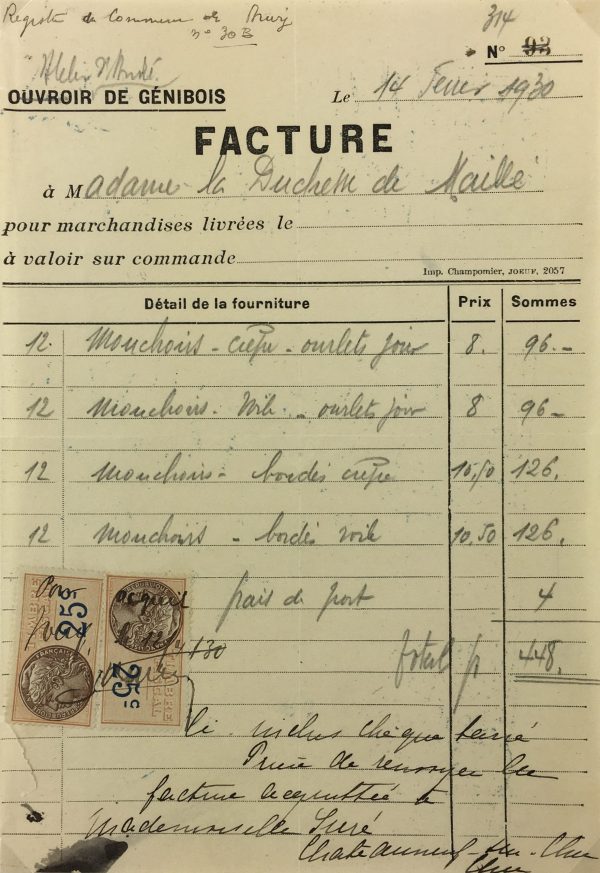 Registre de Commerce de Briey
n° 30B
314
N° 93
OUVROIR DE GÉNIBOIS
Le 14 Fevrier 1930
FACTURE
à Madame la Duchesse de Maillé
pour marchandises livrées le
à valoir sur commande
Imp. Champomier, JOEUF, 2057
Détail de la fourniture Prix Sommes
12. Mouchoirs - crêpe - ourlets jour 8. 96.-
12 Mouchoirs - Voile - ourlets jour 8 96-
12 Mouchoirs - bordés crêpe 10,50 126.
12 Mouchoirs - bordés voile 10.50 126.
frais de port 4
total 448.
Pour acquit
le 12/4/30
25
25
Ci-inclus chèque barré
Prière de renvoyer la
facture acquittée à
Mademoiselle Suré
Chateauneuf-sur-Cher
Cher